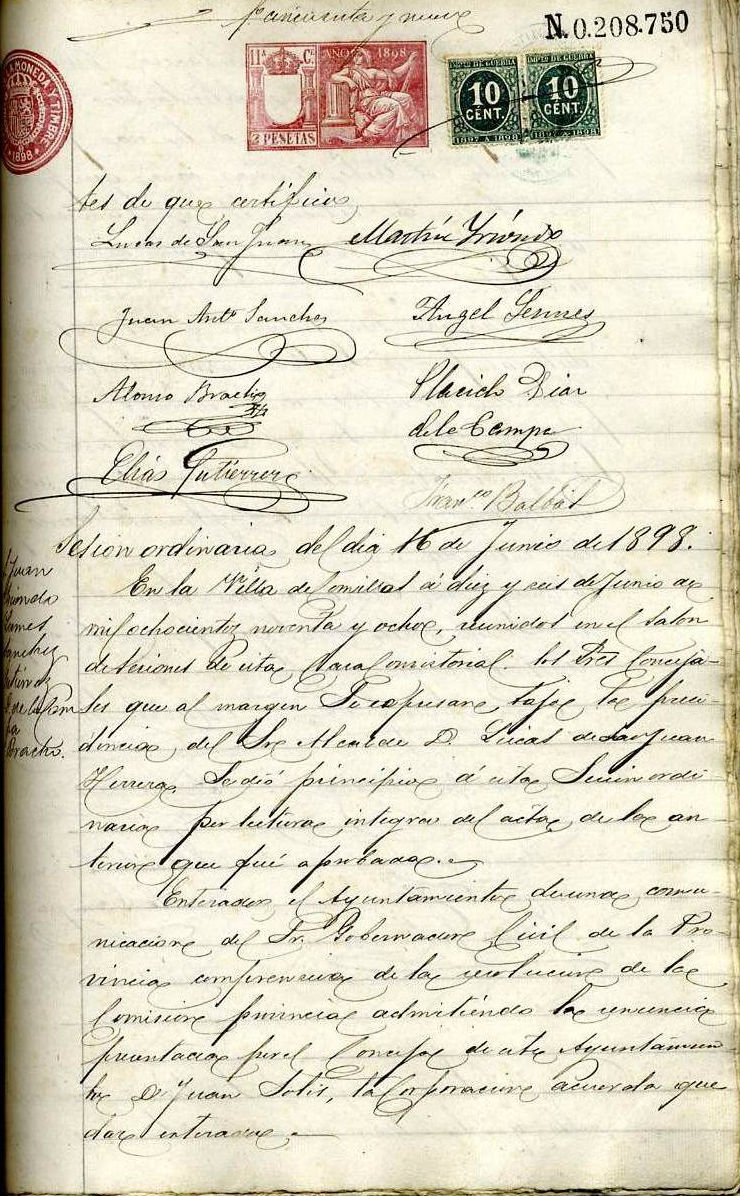 cincuenta y nueve
N. 0.208.750
MONEDA Y TIMBRE
1898
11ª C.
AÑO 1898
2 PESETAS
IMPTO DE GUERRA
10
CENT.
1897 A 1898
IMPTO DE GUERRA
10
CENT.
1897 A 1898
tes de que certifico
Lucas de San Juan Martin Yriondo
Juan Antº Sanchez
Angel
Alonso Bracho
Placido Diaz
de la Campa
Elias Gutierrez
Franco Balbás
Sesion ordinaria del dia 16 de Junio de 1898.
Juan
Sanchez
de la Cam
pa
Bracho.
En la Villa de Comillas á diez y seis de Junio de
mil ochocientos noventa y ocho, reunidos en el salon
de sesiones de esta Casa Consistorial los Sres Conceja-
les que al margen se expresan, bajo la presi-
dencia del Sr Alcalde D. Lucas de San Juan
Herrera se dió principio á esta Sesion ordi-
naria por lectura integra del acta de la an-
terior que fué aprobada.
Enterado el Ayuntamiento de una comu-
nicacion del Sr. Gobernador Civil de la Pro-
vincia comprensiva de la resolucion de la
Comision provincial admitiendo la renuncia
presentada por el Concejal de este Ayuntamien-
to D. Juan Solis, la Corporacion acuerda que
dar enterada.